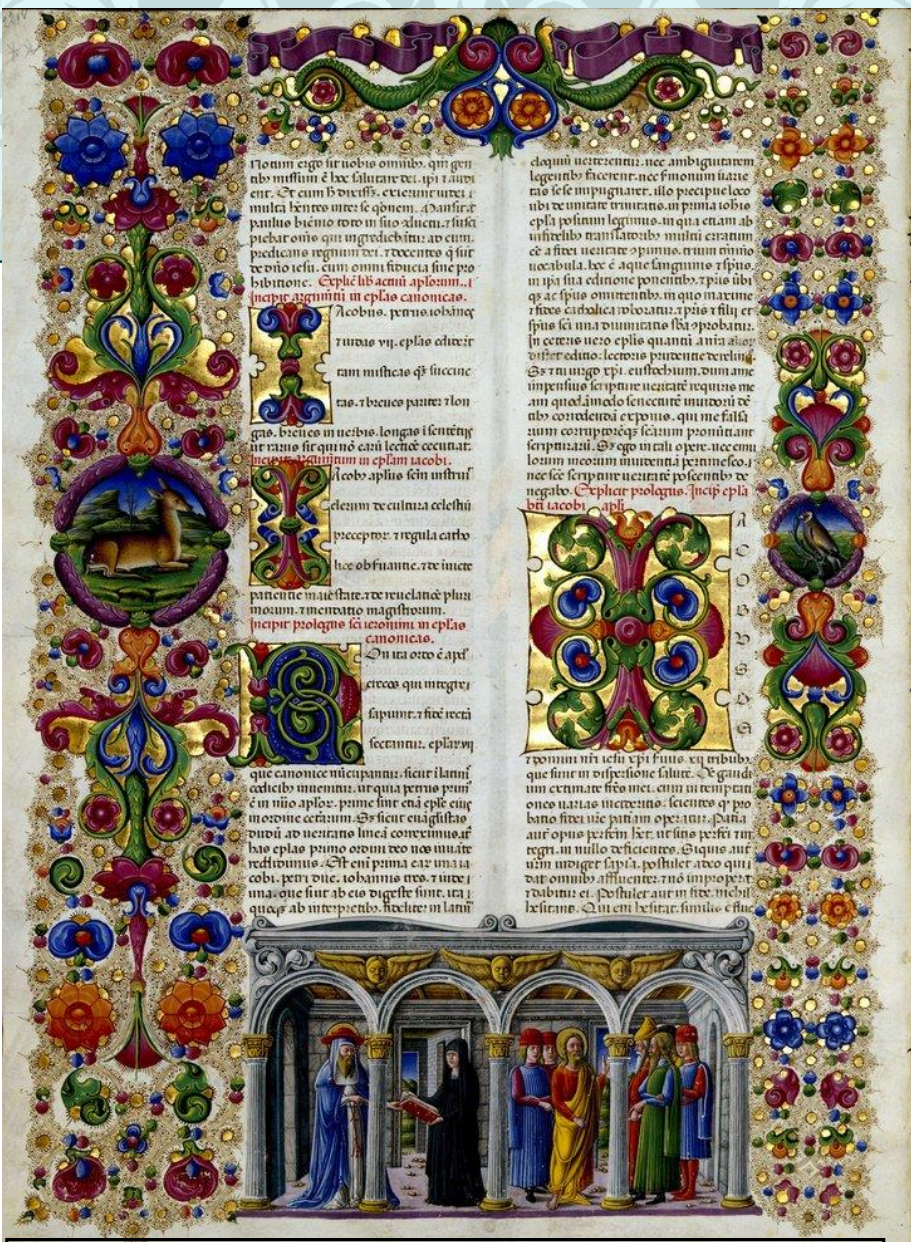 Notum ergo sit uobis omnibꝫ. qm̄ gen
tibꝫ missum ē hoc salutare dei. ipi ⁊ audi
ent. Et cum h̄ dixisset. exierunt
multā hn̄tes inter se
paulus biēnio toto in suo
piebat om̄s qui ingrediebātur ad eum.
predicans regnum dei. ⁊ docentes q̄ sūt
de dn̄o iesu. cum omni fiducia sine pro
hibitione. Explic̄ lib actuū aplorum.
Incipit argumtū in eplas canonicas.
Iacobus. petrus. iohānes
⁊ iudas vii. eplas
tam misticas qꝫ succinc
tas. ⁊ breues pariter ⁊ lon
gas. breues in uerbis. longas ī sentētijs
ut rarus sit qui nō
Incipit argumtum in eplam iacobi.
Iacobꝫ aplus
celerum de cultura celestiū
preceptor. ⁊ regula catho
lice obseruantie. ⁊ de inuicte
patientie maiestate. ⁊ de reuelatiōe pluri
morum. ⁊ mendatio magistrorum.
Incipit prologus sci ieronimi in eplas
canonicas.
Non ita ordo ē apd̄
grecos qui integre
sapiunt. ⁊ fidē rectā
sectantur. eplar. vii
que canonice nūcupantur. sicut ī latinis
codicibꝫ inuenitur. ut quia petrus primꝫ
ē in nūo aplor. prime sint etiā eple eius
in ordine cetarum. Sꝫ sicut euāglistas
dudū ad ueritatis lineā correximus. ita
has eplas primo ordini deo nos iuuāte
reddidimus. Est eni prima ear una ia
cobi. petri due. iohannis tres. ⁊ iude
una. que sicut ab eis digeste sunt. ita ⁊
quoqꝫ ab interpretibꝫ. fideliter in latinū
eloquiū uerterentur. nec ambiguitatem
legentibꝫ facerent. nec sermonum uarie
tas sese impugnaret. illo precipue loco
ubi de unitate trinitatis. in prima iohis
epla positum legimus. in qua etiam ab
infidelibꝫ translatoribꝫ multū erratum
ē a fidei ueritate
uocabula. hoc ē aque sanguinis ⁊ spūs.
in ipa sua editione ponentibꝫ. ⁊ pris
qꝫ ac spūs omittentibꝫ. in quo maxime
⁊ fides catholica roboratur. ⁊ pris ⁊ filii et
spūs sci una diuinitatis sb̄a
In ceteris uero eplis quantū a nrā alior
distet editio. lectoris prudentie derelinqo.
Sꝫ tu uirgo xpi. eustochium. dum a me
impensius scripture ueritatē requiris me
am quodāmodo senectutē inuidorū dē
tibꝫ corrodendā exponis. qui me falsa
rium corruptorēqꝫ scarum pronūtiant
scripturarū. Sꝫ ego in tali opere. nec emu
lorum meorum inuidentiā pertimesco.
nec scē scripture ueritatē poscentibꝫ de
negabo. Explicit prologus. Incip epla
bti iacobi apli
I
A
C
O
B
V
S
D
E
I
⁊ domini nr̄i iesu xpi suus. xij tribubꝫ
que sunt in dispersione salutē. Oē gaudi
um extimate frēs mei. cum in temptati
ones uarias incideritis. scientes qꝫ pro
batio fidei ure patiam operatur. Patia
aut opus perfctm̄ het. ut sitis perfcti ⁊ in
tegri. in nullo deficientes. Siquis aut
urm̄ indiget sapīa. postulet a deo qui
dat omnibꝫ affluenter. ⁊ nō improperat
⁊ dabitur ei. Postulet aut in fide. nichil
hesitans. Qui eni hesitat. similis ē fluc